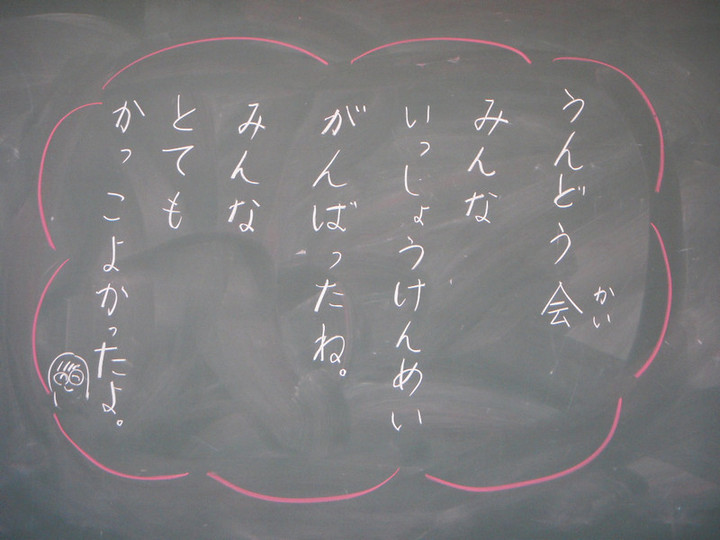 うんどう会
かい
みんな
いっしょうけんめい
がんばったね。
みんな
とても
かっこよかったよ。